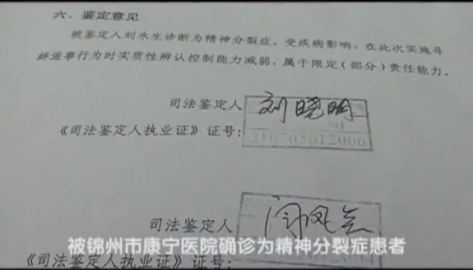 六、鉴定意见
被鉴定人刘水生诊断为精神分裂症，受疾病影响，在此次实施寻
衅滋事行为时实质性辨认控制能力减弱，属于限定（部分）责任能力。
司法鉴定人 刘晓明
《司法鉴定人执业证》证号： 210705012006
司法鉴定人
《司法鉴定人执业证》证号：
被锦州市康宁医院确诊为精神分裂症患者